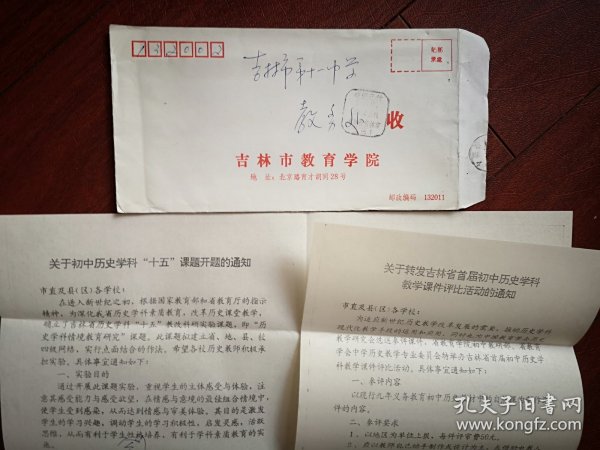 132002
贴邮
票处
吉林市第十一中学
教务处
收
吉林市教育学院
地 址：北京路育才胡同28号
邮政编码 132011
关于初中历史学科“十五”课题开题的通知
市直及县（区）各学校：
在进入新世纪之初，根据国家教育部和省教育厅的指示
精神，为深化我省历史学科素质教育，改革历史课堂教学，
确立了吉林省历史学科“十五”教改科研实验课题，即“历
史学科情境教育研究”课题。此课题拟建立省、地、县、校
四级网络，实行点面结合的作法。希望各校历史教师积极承
担实验。具体事宜通知如下：
一、实验目的
通过开展此课题实验，重视学生的主体感受与体验，注
意其感受能力与感受欲望，在情感与意境的最佳组合情境中，
使学生受到感染，从而达到情感与审美体验。其目的是激发
学生的学习兴趣，调动学生的学习积极性，启发灵感，活跃
思维，从而有利于学生性格培养，有利于学科素质教育的实
施。
关于转发吉林省首届初中历史学科
教学课件评比活动的通知
市直及县（区）各学校：
为适应新世纪历史教学改革发展的需要，推动历史学科
现代化教学手段的运用和应用，
学研究会优选参评课件，省教育学院初中教研部、省教育
学会中学历史教学专业委员会特举办吉林省首届初中历史学
科教学课件评比活动。具体事宜通知如下：
一、参评内容
以现行九年义务教育初中历史
件的内容。
二、参评要求
1、以地区为单位上报，每件评审费50元。
孔夫子旧书网